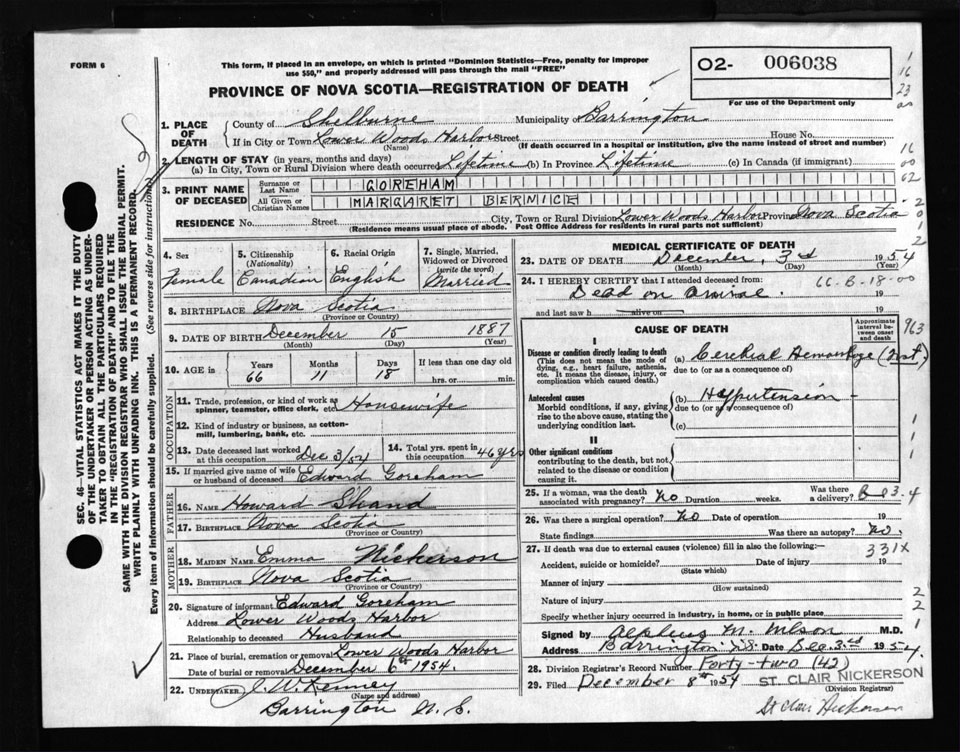 FORM 6
This form, if placed in an envelope, on which is printed "Dominion Statistics—Free, penalty for improper
use $50," and properly addressed will pass through the mail "FREE"
O2- 006038
For use of the Department only
PROVINCE OF NOVA SCOTIA—REGISTRATION OF DEATH
1. PLACE OF DEATH
County of Shelburne Municipality of Barrington
If in City or Town Lower Woods Harbor Street House No.
(Name) (If death occurred in a hospital or institution, give the name instead of street and number)
2. LENGTH OF STAY (in years, months and days)
(a) In City, Town or Rural Division where death occurred Lifetime (b) In Province Lifetime (c) In Canada (if immigrant)
3. PRINT NAME OF DECEASED
Surname or Last Name GOREHAM
All Given or Christian Names MARGARET BERNICE
RESIDENCE No. Street City, Town or Rural Division Lower Woods Harbor Province Nova Scotia
(Residence means usual place of abode. Post Office Address for residents in rural parts not sufficient)
4. Sex Female
5. Citizenship (Nationality) Canadian
6. Racial Origin English
7. Single, Married, Widowed or Divorced (write the word) Married
8. BIRTHPLACE Nova Scotia
(Province or Country)
9. DATE OF BIRTH December 15 1887
(Month) (Day) (Year)
10. AGE in Years 66 Months 11 Days 18 If less than one day old hrs. or min.
OCCUPATION
11. Trade, profession, or kind of work as spinner, teamster, office clerk, etc. Housewife
12. Kind of industry or business, as cotton-mill, lumbering, bank, etc.
13. Date deceased last worked at this occupation Dec 3/54
14. Total yrs. spent in this occupation 46 yrs
15. If married give name of wife or husband of deceased Edward Goreham
FATHER
16. NAME Howard Shand
17. BIRTHPLACE Nova Scotia
MOTHER
18. MAIDEN NAME Emma Nickerson
19. BIRTHPLACE Nova Scotia
(Province or Country)
20. Signature of informant Edward Goreham
Address Lower Woods Harbor
Relationship to deceased Husband
21. Place of burial, cremation or removal Lower Woods Harbor
Date of burial or removal December 6th 1954.
22. UNDERTAKER J. W. Kenney
(Name and address)
Barrington N. S.
MEDICAL CERTIFICATE OF DEATH
23. DATE OF DEATH December, 3rd 1954
(Month) (Day) (Year)
24. I HEREBY CERTIFY that I attended deceased from: 66-B-18-00
Dead on arrival. 19
and last saw h alive on 19
CAUSE OF DEATH
Approximate interval between onset and death
963
I
Disease or condition directly leading to death
(This does not mean the mode of dying, e.g., heart failure, asthenia, etc. It means the disease, injury, or complication which caused death.)
(a) Cerebral Hemorrhage (
due to (or as a consequence of)
Antecedent causes
Morbid conditions, if any, giving rise to the above cause, stating the underlying condition last.
(b) Hypertension
due to (or as a consequence of)
(c)
II
Other significant conditions
contributing to the death, but not related to the disease or condition causing it.
25. If a woman, was the death associated with pregnancy? No Duration weeks. Was there a delivery?
26. Was there a surgical operation? No Date of operation 19
State findings Was there an autopsy? No.
27. If death was due to external causes (violence) fill in also the following:— 331X
Accident, suicide or homicide? Date of injury 19
(State which)
Manner of injury
(How sustained)
Nature of injury
Specify whether injury occurred in industry, in home, or in public place
Signed by Alpheus M. Wilson M.D.
Address Barrington N.S. Date Dec. 3rd 1954.
28. Division Registrar's Record Number Forty-two (42)
29. Filed December 8th 1954 ST. CLAIR NICKERSON
(Division Registrar)
St Clair Nickerson
SEC. 46—VITAL STATISTICS ACT MAKES IT THE DUTY
OF THE UNDERTAKER OR PERSON ACTING AS UNDER-
TAKER TO OBTAIN ALL THE PARTICULARS REQUIRED
IN THE "REGISTRATION OF DEATH" AND TO FILE THE
SAME WITH THE DIVISION REGISTRAR WHO SHALL ISSUE THE BURIAL PERMIT.
WRITE PLAINLY WITH UNFADING INK. THIS IS A PERMANENT RECORD.
Every item of information should be carefully supplied. (See reverse side for instructions)